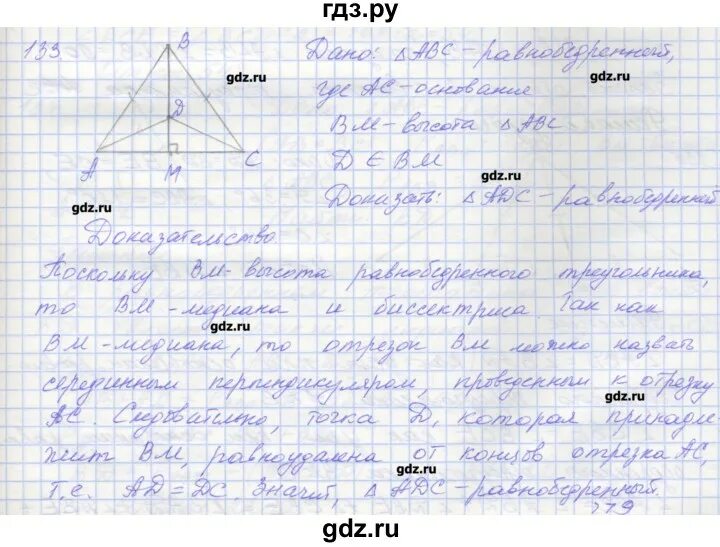 гдз.ру
133
B
D
A
M
C
gdz.ru
Дано: △ABC - равнобедренный,
где AC - основание
BM - высота △ABC
D ∈ BM
gdz.ru
gdz.ru
Доказать: △ADC - равнобедренный
gdz.ru
Доказательство
Поскольку BM - высота равнобедренного треугольника,
то BM - медиана и биссектриса. Так как
gdz.ru
BM - медиана, то отрезок BM можно назвать
серединным перпендикуляром, проведенным к отрезку
gdz.ru
AC. Следовательно, точка D, которая принадле-
жит BM, равноудалена от концов отрезка AC,
gdz.ru
т.е. AD = DC. Значит, △ADC - равнобедренный.
gdz.ru